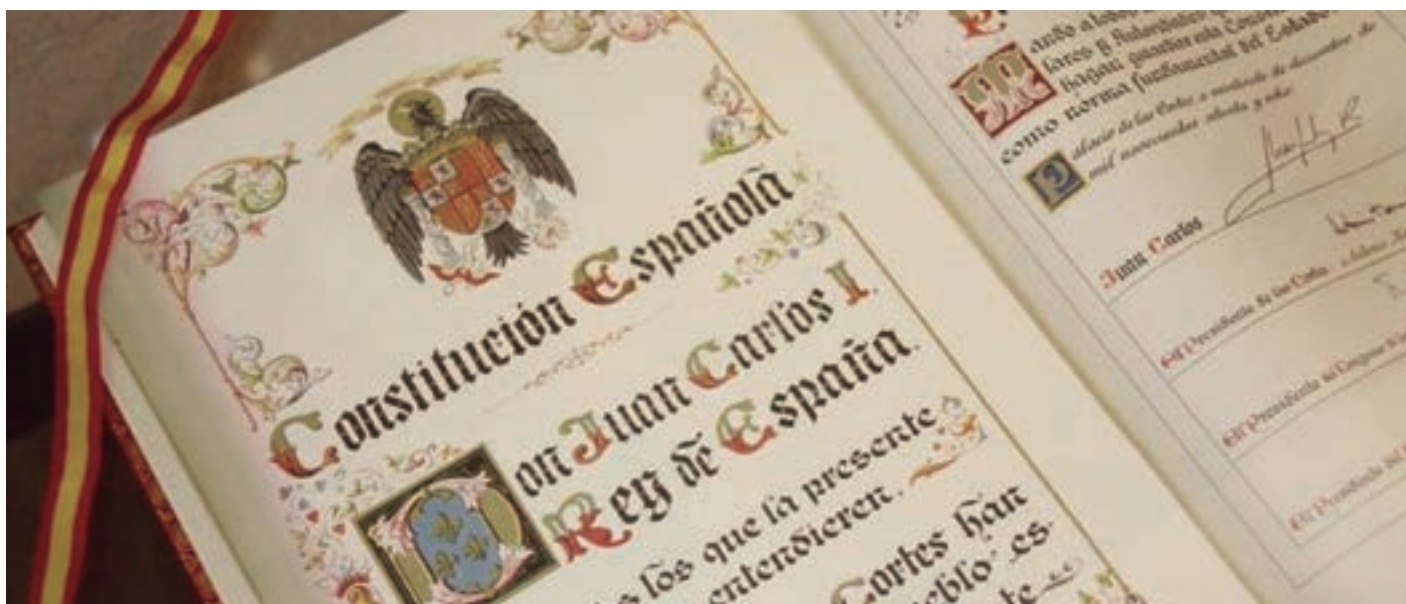 Constitución Española
Don Juan Carlos I.
Rey de España.
los que la presente
entendieren.
Cortes han
es-
ando a todos
lares y Autoridades
hagan guardar esta
como norma fundamental del Estado.
Palacio de las Cortes, a de diciembre de
mil novecientos
Juan Carlos
El Presidente de las Cortes
El Presidente del Congreso
El Presidente del